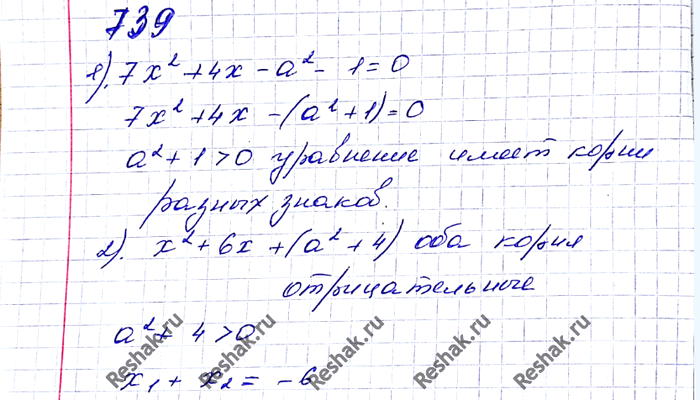 739
1). 7x² + 4x - a² - 1 = 0
7x² + 4x - (a² + 1) = 0
a² + 1 > 0 уравнение имеет корни
разных знаков.
2). x² + 6x + (a² + 4) оба корня
отрицательные
a² + 4 > 0
x₁ + x₂ = -6
Reshak.ru Reshak.ru Reshak.ru Reshak.ru Reshak.ru